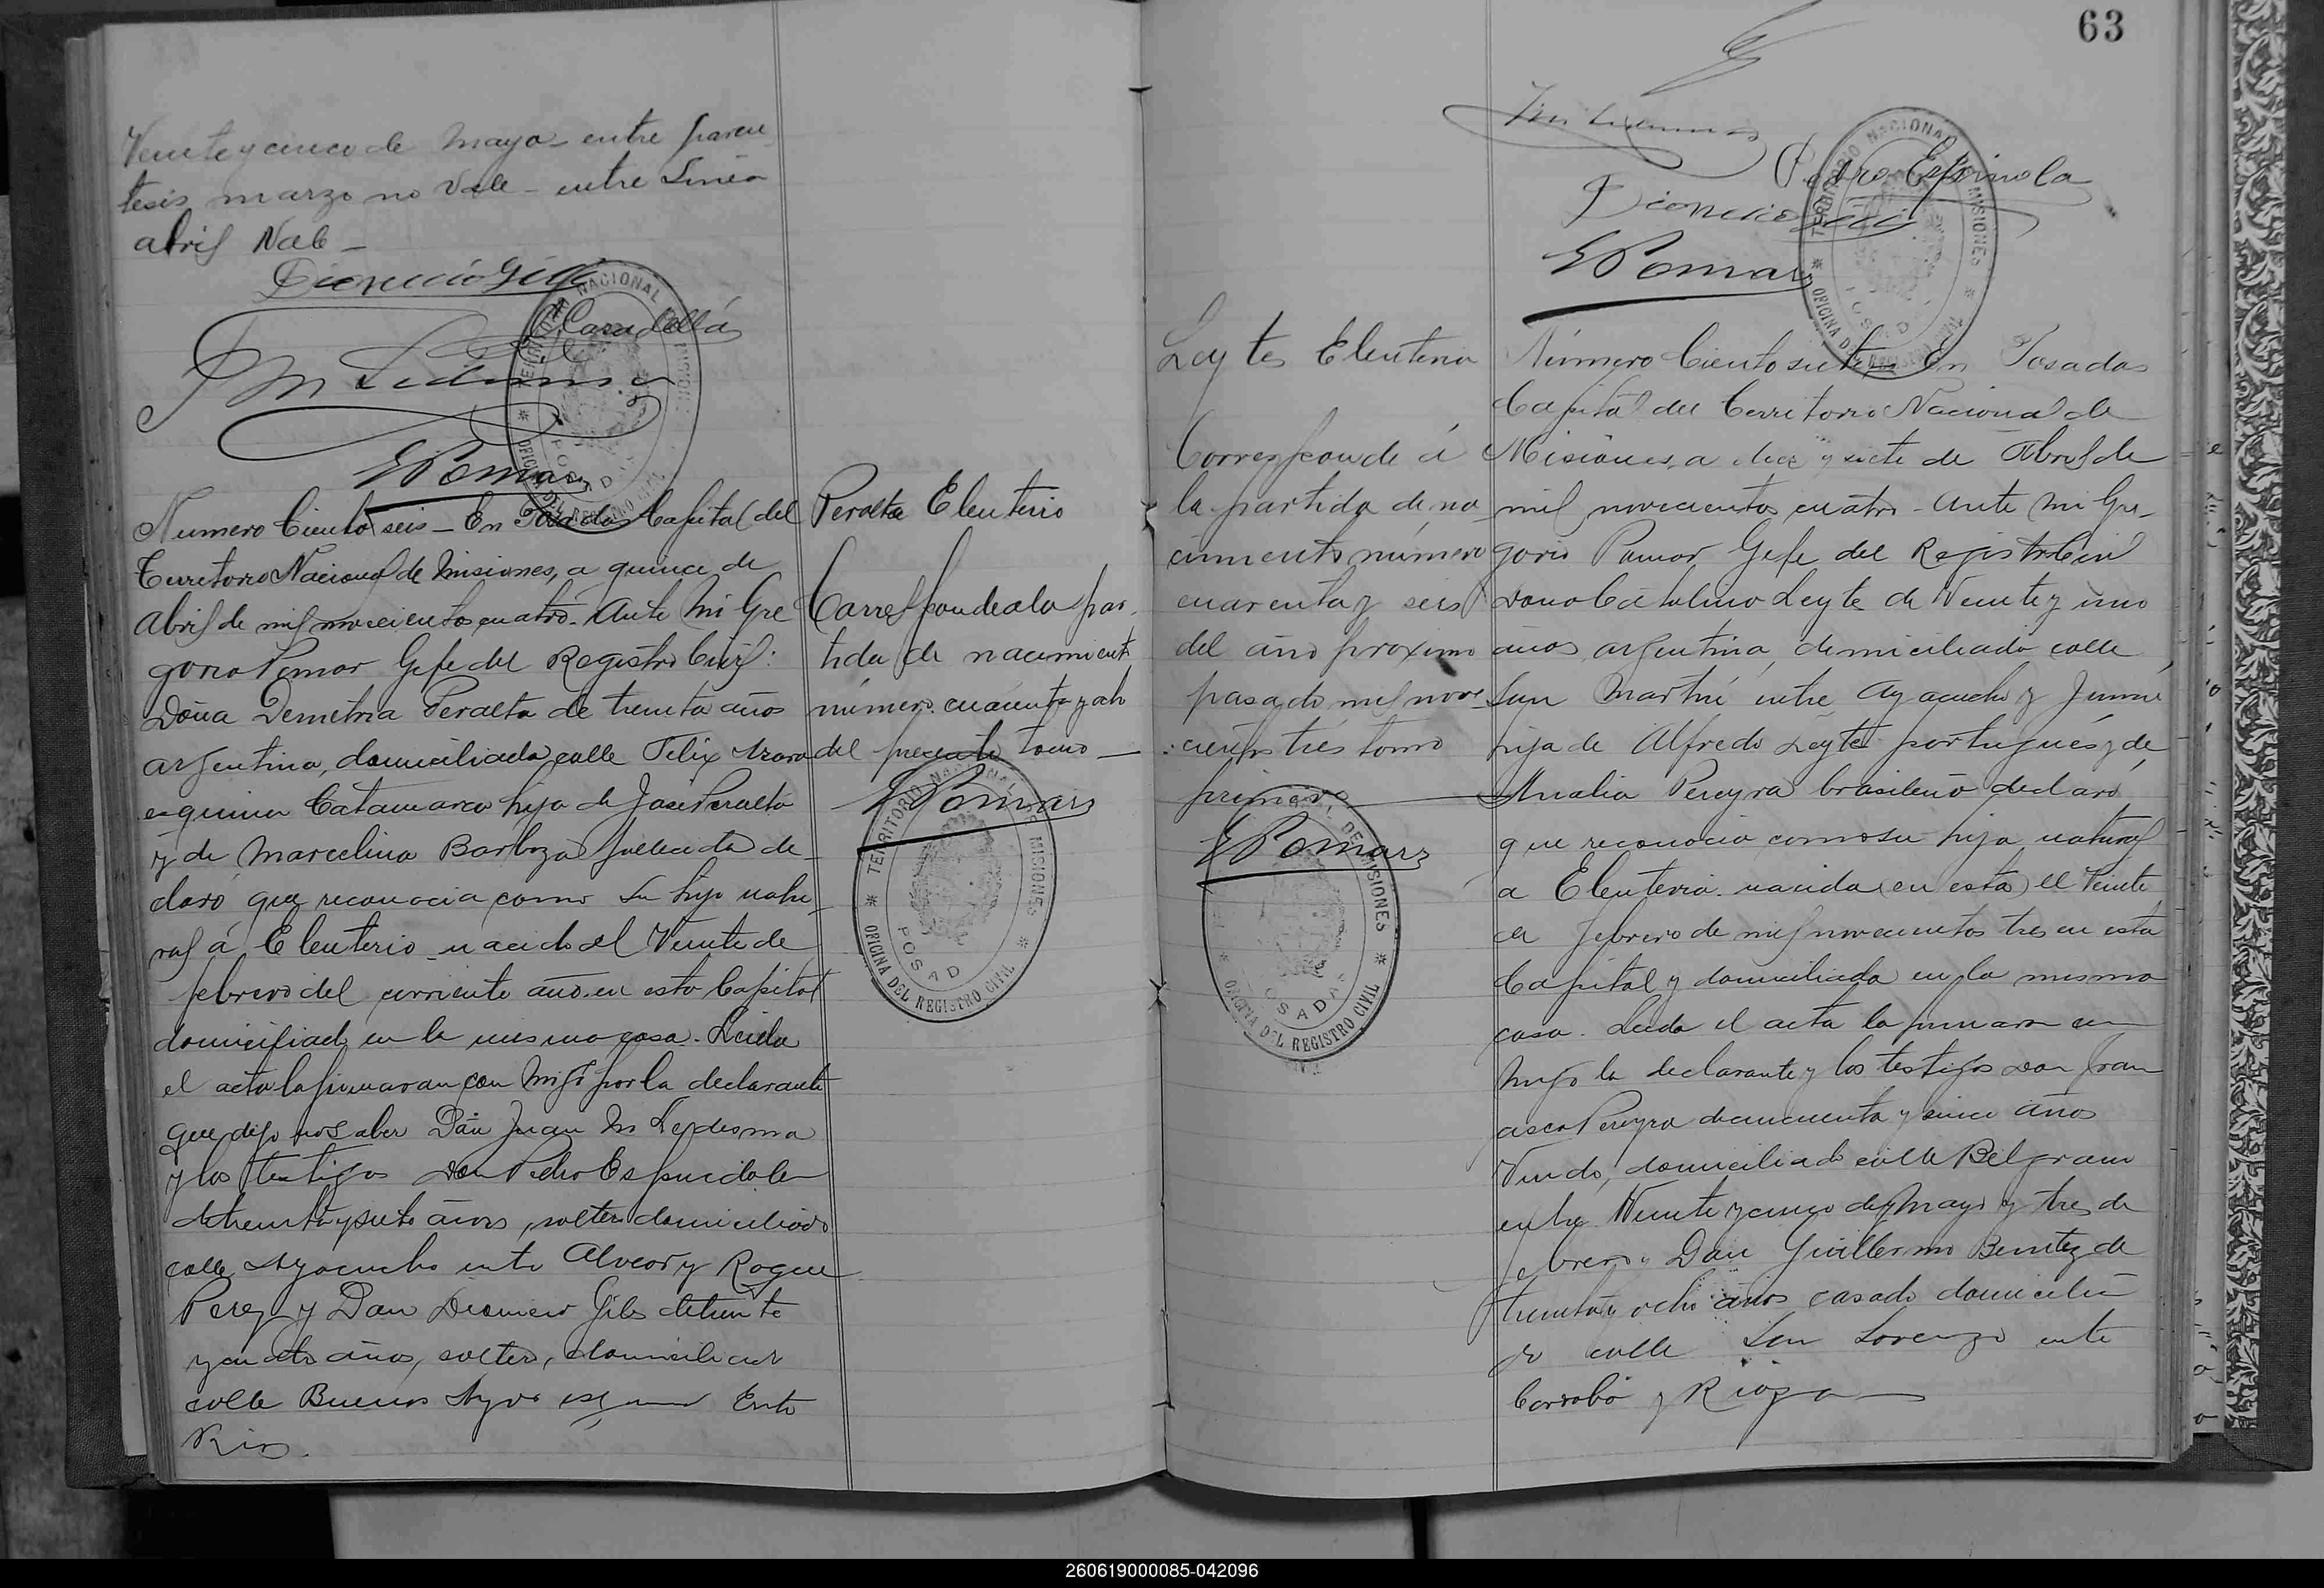 Veinte y cinco de Mayo - entre paren
tesis marzo no Vale - entre Linea
abril Vale -
Dionicio Gili
C Candellá
J M Ledesma
GPomar
Numero Ciento seis - En Posadas Capital del
Territorio Nacional de Misiones, a quince de
Abril de mil novecientos cuatro. Ante Mi Gre
gorio Pomar Gefe del Registro Civil:
Doña Demetria Peralta de treinta años
argentina, domiciliada calle Felix Azara
esquina Catamarca hija de José Peralta
y de Marcelina Barboza fallecida de-
claró que reconocia como su hijo natu-
ral á Eleuterio nacido el Veinte de
febrero del corriente año en esta Capital
domiciliado en la misma casa. Leida
el acta la firmaran con migo por la declarante
que dijo no saber Don Juan M Ledesma
y los testigos Don Pedro Espindola
de treinta y siete años, soltero domiciliado
calle Ayacucho entre Alvear y Roque
Perez y Don Dionicio Gili de treinta
y cuatro años, soltero, domiciliado
calle Buenos Ayres esquina Entre
Rios.
Peralta Eleuterio
Corresponde a la par-
tida de nacimiento
número cuarenta y ocho
del presente tomo -
GPomar
TERRITORIO NACIONAL DE MISIONES
POSADAS
OFICINA DEL REGISTRO CIVIL
63
Pedro Espinola
Dionicio Gili
GPomar
TERRITORIO NACIONAL DE MISIONES
POSADAS
OFICINA DEL REGISTRO CIVIL
Leytes Eleuteria
Corresponde á
la partida de na-
cimiento número
cuarenta y seis
del año proximo
pasado mil nove-
cientos tres tomo
primero,
GPomar
DE MISIONES
POSADAS
OFICINA DEL REGISTRO CIVIL
Número Ciento siete En Posadas
Capital del Territorio Nacional de
Misiones, a diez y siete de Abril de
mil novecientos cuatro - Ante Mi Gre-
gorio Pomar Gefe del Registro Civil
Leyte de Veinte y uno
años, argentina, domiciliada calle
San Martin entre Ayacucho y Junin
hija de Alfredo Leyte portugués y de
Amalia Pereyra brasileña declaró
que reconocia como su hija natural
a Eleuteria nacida (en esta) el Veinte
de febrero de mil novecientos tres en esta
Capital y domiciliada en la misma
casa. Leida el acta la firmaran con
migo la declarante y los testigos Don Fran
cisco Pereyra de cincuenta y cinco años
Viudo, domiciliado calle Belgrano
entre Veinte y cinco de Mayo y tres de
febrero y Don Guillermo Benitez de
treinta y ocho años casado domicilia
do calle San Lorenzo entre
Cordoba y Rioja
260619000085-042096